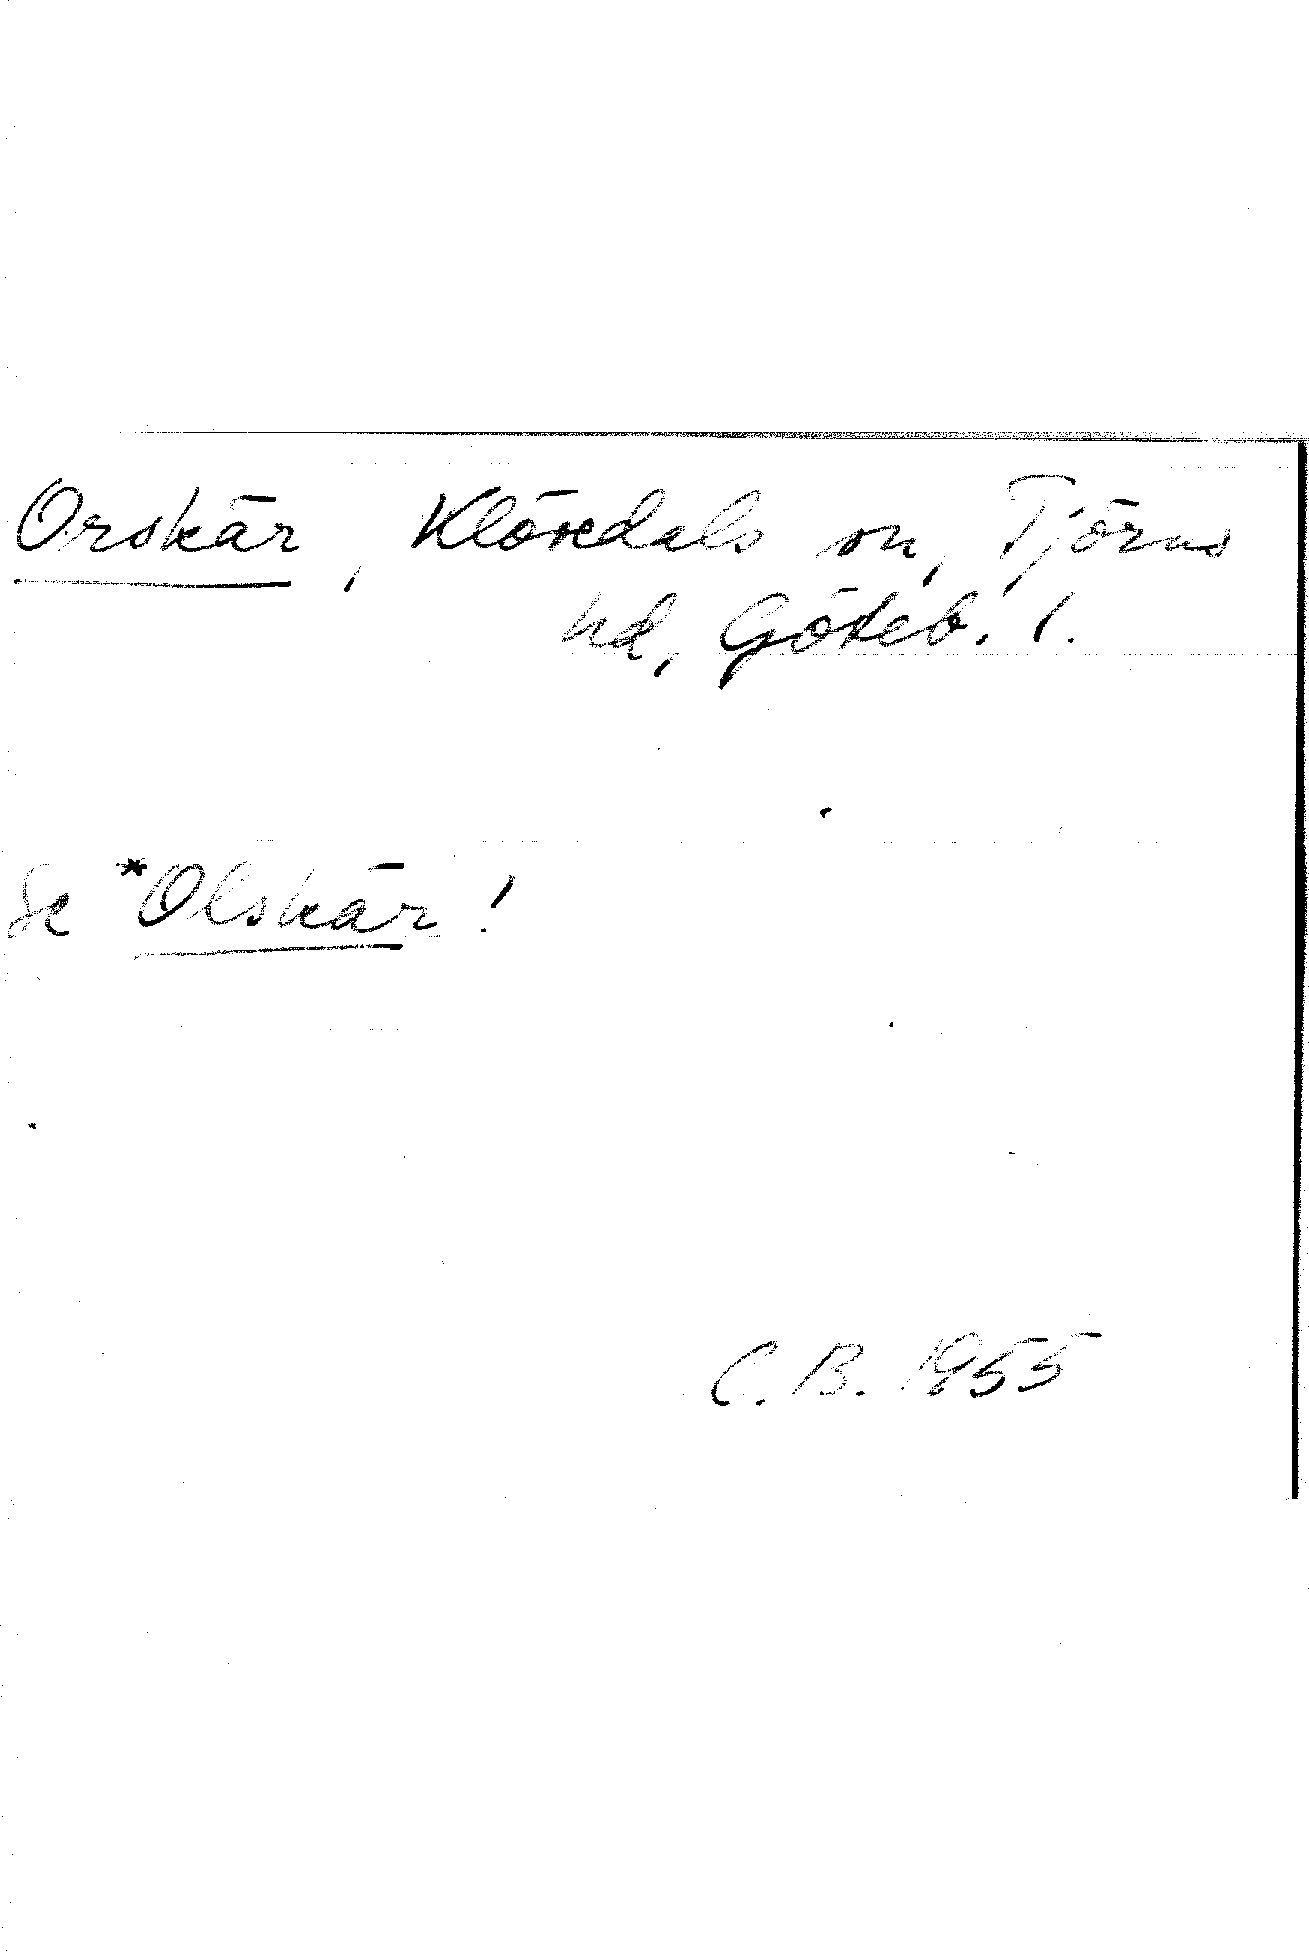 Orskär, Klövedals sn, Tjörns
hd, Göteb. l.
Se *Olskär!
C. B. 1955